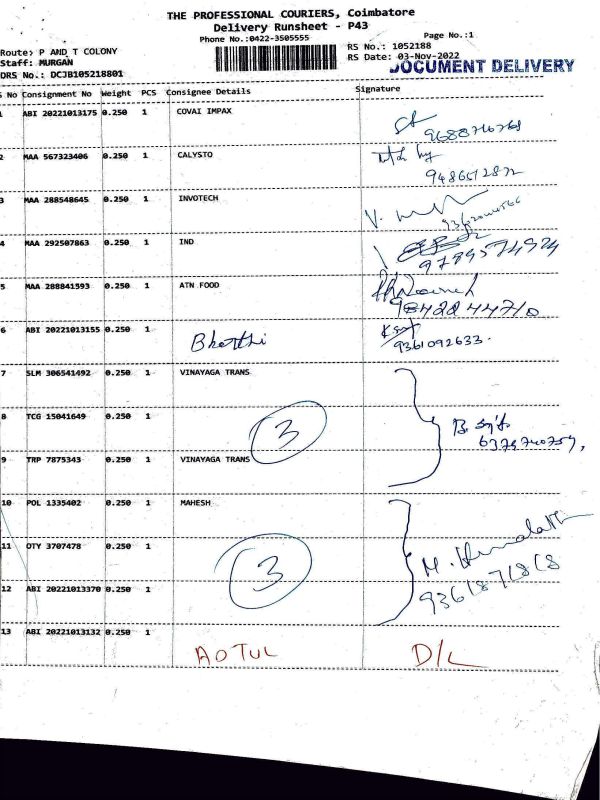 THE PROFESSIONAL COURIERS, Coimbatore
Delivery Runsheet - P43
Phone No.:0422-3505555
Page No.:1
Route: P AND T COLONY
RS No.: 1052188
Staff: MURGAN
RS Date: 03-Nov-2022
DRS No.: DCJB105218801
DOCUMENT DELIVERY
S No Consignment No Weight PCS Consignee Details Signature
1 ABI 20221013175 0.250 1 COVAI IMPAX
9688740768
2 MAA 567323406 0.250 1 CALYSTO
3 MAA 288548645 0.250 1 INVOTECH
4 MAA 292507863 0.250 1 IND
9789574974
5 MAA 288841593 0.250 1 ATN FOOD
9842244710
6 ABI 20221013155 0.250 1 Bharthi
9361092633.
7 SLM 306541492 0.250 1 VINAYAGA TRANS
8 TCG 15041649 0.250 1
3
9 TRP 7875343 0.250 1 VINAYAGA TRANS
10 POL 1335402 0.250 1 MAHESH
11 OTY 3707478 0.250 1
M. Hemalatha
3
9361871818
12 ABI 20221013370 0.250 1
13 ABI 20221013132 0.250 1
AOTUL D/L